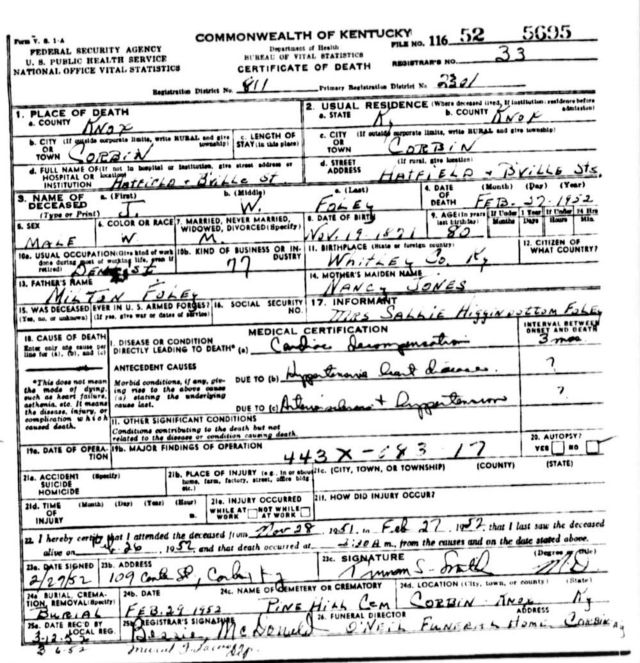 Form V. S. 1-A
COMMONWEALTH OF KENTUCKY
FEDERAL SECURITY AGENCY
U. S. PUBLIC HEALTH SERVICE
NATIONAL OFFICE VITAL STATISTICS
Department of Health
BUREAU OF VITAL STATISTICS
CERTIFICATE OF DEATH
FILE NO. 116 52 5695
REGISTRAR'S NO. 33
Registration District No. 811 Primary Registration District No. 2301
1. PLACE OF DEATH
a. COUNTY KNOX
2. USUAL RESIDENCE (Where deceased lived, If institution: residence before admission)
a. STATE Ky b. COUNTY KNOX
b. CITY (If outside corporate limits, write RURAL and give township) OR TOWN CORBIN
c. LENGTH OF STAY (in this place)
c. CITY (If outside corporate limits, write RURAL and give township) OR TOWN CORBIN
d. FULL NAME OF (If not in hospital or institution, give street address or location) HOSPITAL OR INSTITUTION HATFIELD + B'VILLE ST
d. STREET ADDRESS (If rural, give location) HATFIELD + BVILLE STS.
3. NAME OF DECEASED (Type or Print) a. (First) J. b. (Middle) W. c. (Last) FOLEY
4. DATE OF DEATH (Month) (Day) (Year) FEB-27-1952
5. SEX MALE
6. COLOR OR RACE W
7. MARRIED, NEVER MARRIED, WIDOWED, DIVORCED (Specify) M.
8. DATE OF BIRTH NOV. 19-1871
9. AGE (In years last birthday) 80 If Under 1 Year Months Days If Under 24 Hrs Hours Min.
10a. USUAL OCCUPATION (Give kind of work done during most of working life, even if retired) DENTIST
10b. KIND OF BUSINESS OR INDUSTRY 77
11. BIRTHPLACE (State or foreign country) WHITLEY CO. Ky
12. CITIZEN OF WHAT COUNTRY?
13. FATHER'S NAME MILTON FOLEY
14. MOTHER'S MAIDEN NAME NANCY JONES
15. WAS DECEASED EVER IN U. S. ARMED FORCES? (Yes, no, or unknown) (If yes, give war or dates of service)
16. SOCIAL SECURITY NO.
17. INFORMANT MRS SALLIE HIGGINBOTTOM FOLEY
18. CAUSE OF DEATH
Enter only one cause per line for (a), (b), and (c)
MEDICAL CERTIFICATION
INTERVAL BETWEEN ONSET AND DEATH
I. DISEASE OR CONDITION DIRECTLY LEADING TO DEATH* (a) Cardiac decompensation 3 mos
*This does not mean the mode of dying, such as heart failure, asthenia, etc. It means the disease, injury, or complication which caused death.
ANTECEDENT CAUSES
Morbid conditions, if any, giving rise to the above cause (a) stating the underlying cause last.
DUE TO (b) Hypertensive heart disease ?
DUE TO (c) Arteriosclerosis + hypertension ?
II. OTHER SIGNIFICANT CONDITIONS
Conditions contributing to the death but not related to the disease or condition causing death
19a. DATE OF OPERATION
19b. MAJOR FINDINGS OF OPERATION
443X-083-17
20. AUTOPSY? YES NO
21a. ACCIDENT SUICIDE HOMICIDE (Specify)
21b. PLACE OF INJURY (e.g., in or about home, farm, factory, street, office bldg etc.)
21c. (CITY, TOWN, OR TOWNSHIP) (COUNTY) (STATE)
21d. TIME OF INJURY (Month) (Day) (Year) (Hour) m.
21e. INJURY OCCURRED WHILE AT WORK NOT WHILE AT WORK
21f. HOW DID INJURY OCCUR?
22. I hereby certify that I attended the deceased from Nov 28 1951, to Feb 27, 1952 that I last saw the deceased
alive on 26, 1952 and that death occurred at m., from the causes and on the date stated above.
23a. DATE SIGNED 2/27/52
109 St, Corbin Ky
23c. SIGNATURE (Degree MD
24a. BURIAL, CREMATION, REMOVAL (Specify) BURIAL
24b. DATE FEB. 29 1952
24c. NAME OF CEMETERY OR CREMATORY PINE HILL CEM
24d. LOCATION (City, town, or county) (State) CORBIN KNOX Ky
25a. DATE REC'D BY LOCAL REG. 3-12-52
25b. REGISTRAR'S SIGNATURE Bessie McDonald
26. FUNERAL DIRECTOR ADDRESS O'NEIL FUNERAL HOME CORBIN Ky
3 6 52